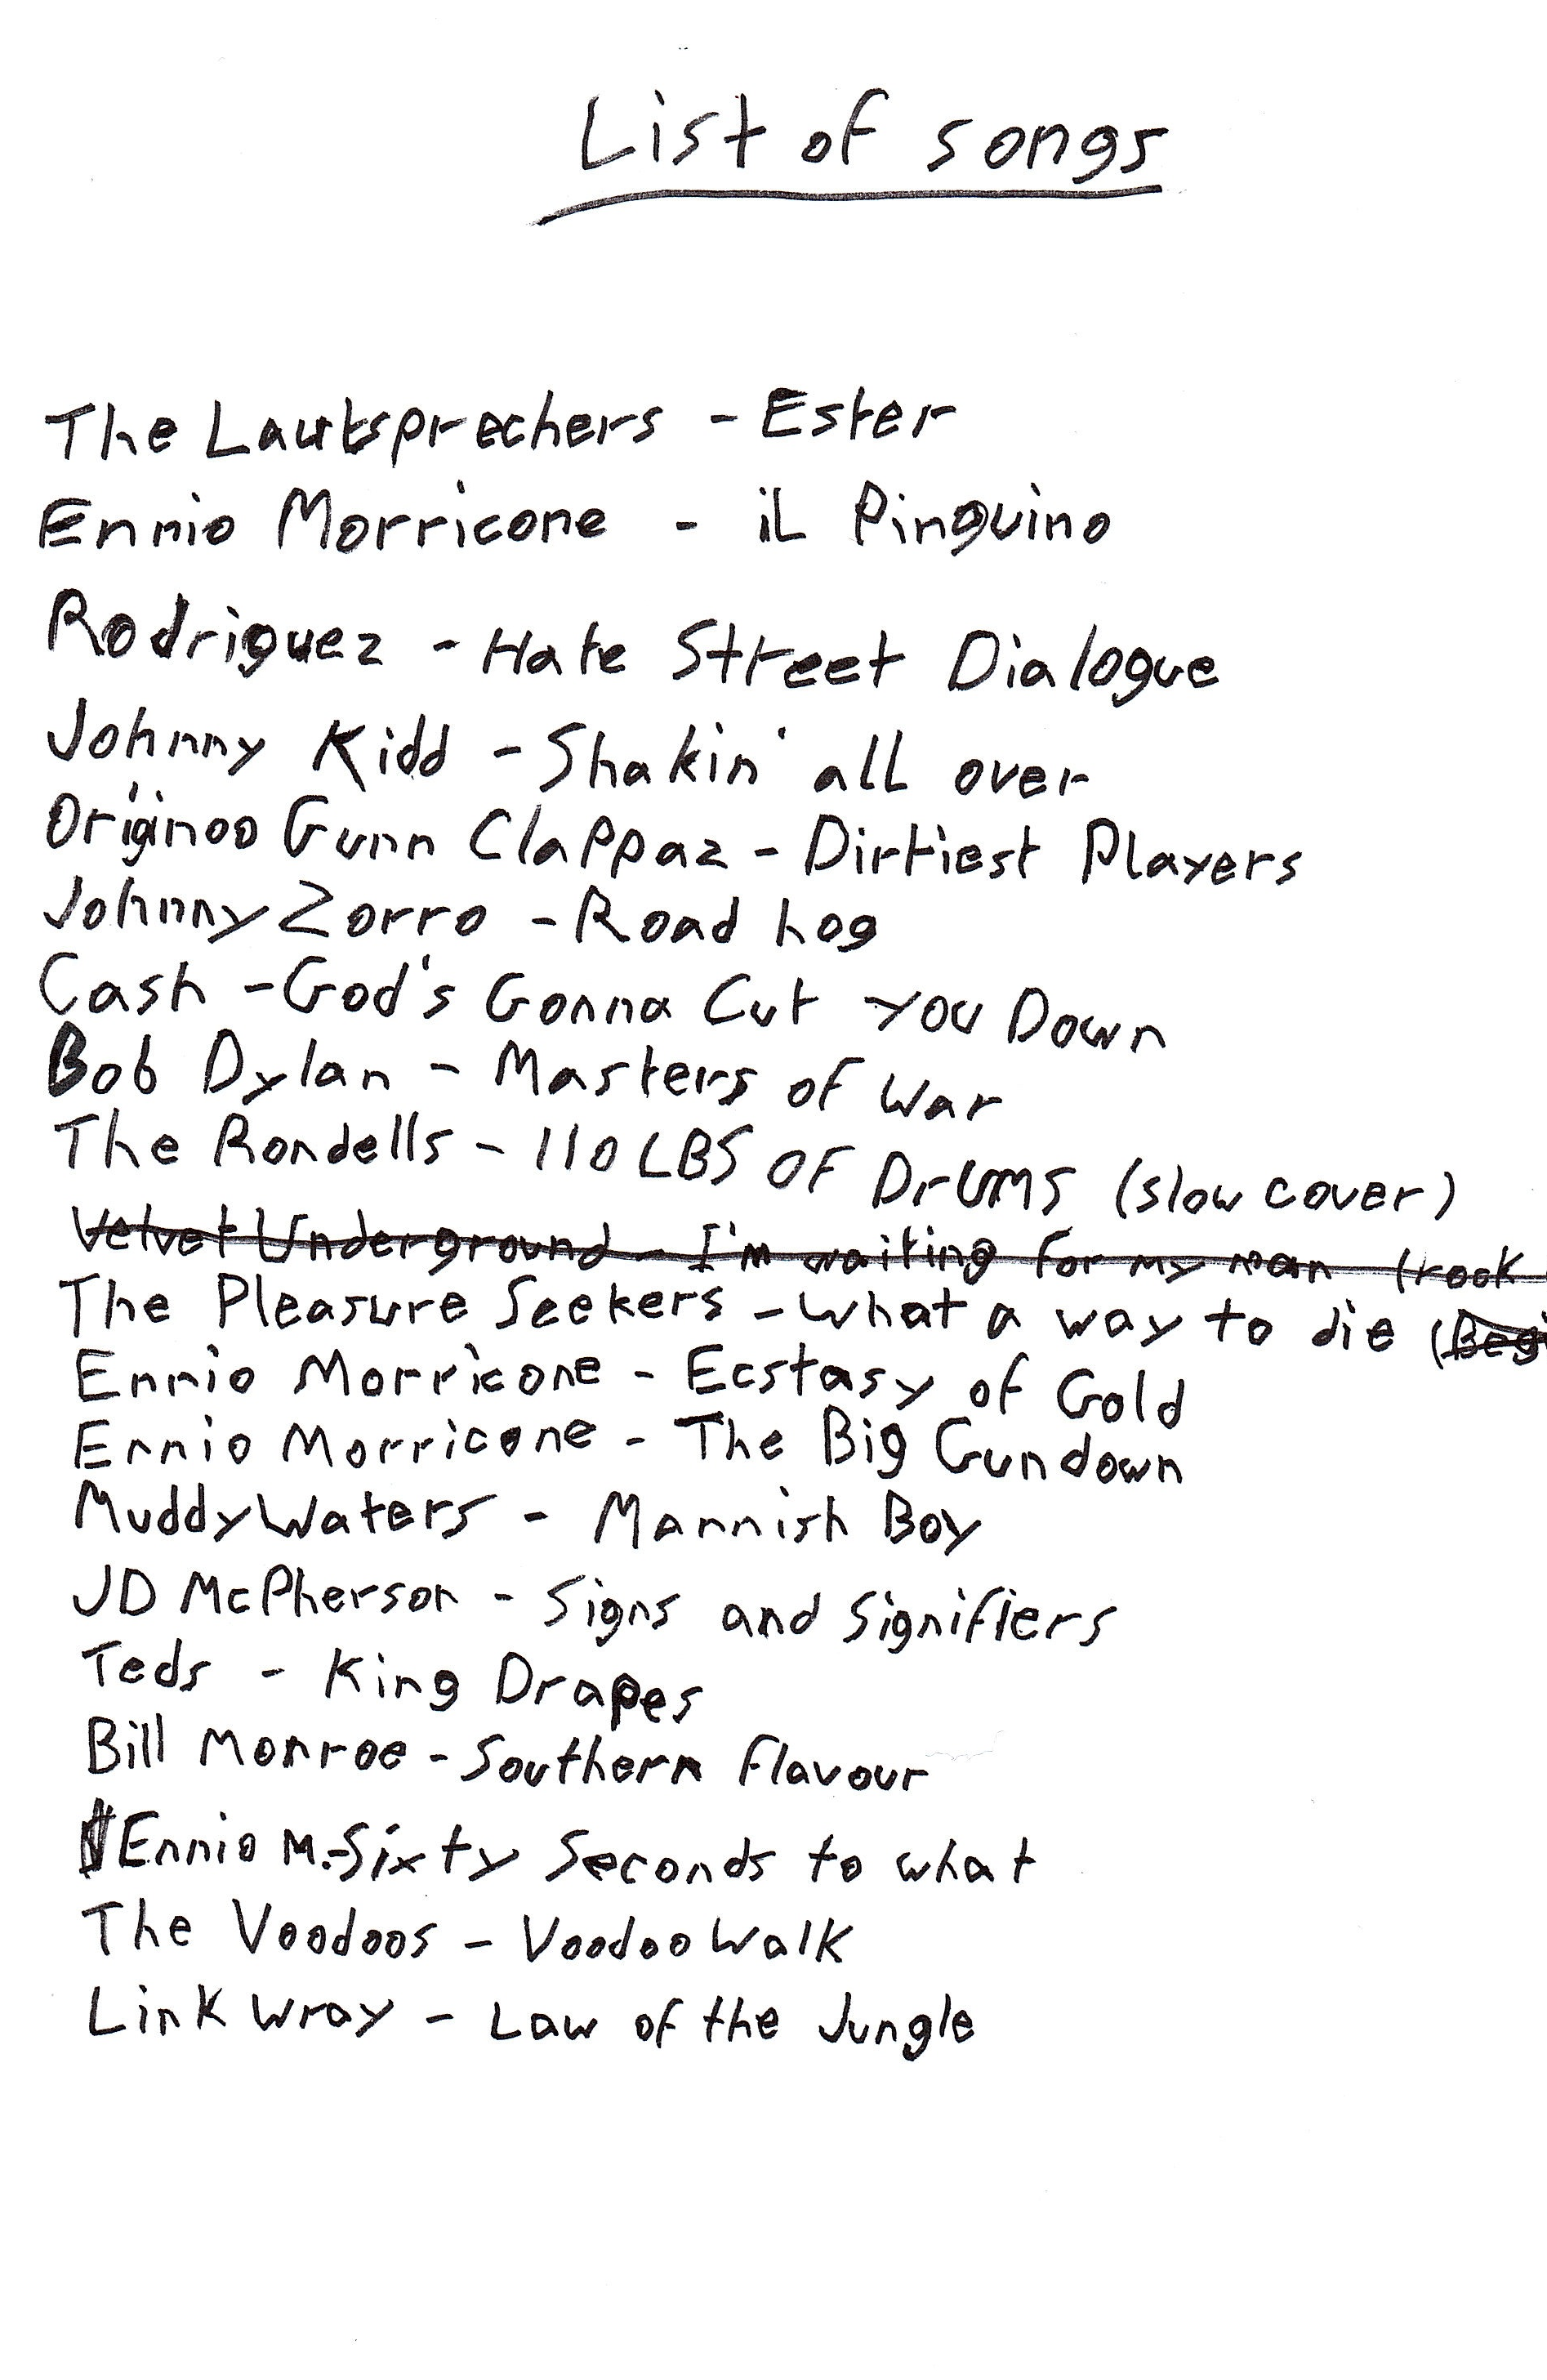 List of songs
The Lautsprechers - Ester
Ennio Morricone - iL Pinguino
Rodriguez - Hate Street Dialogue
Johnny Kidd - Shakin' all over
Originoo Gunn Clappaz - Dirtiest Players
Johnny Zorro - Road hog
Cash - God's Gonna Cut you Down
Bob Dylan - Masters of War
The Rondells - 110 LBS OF DrUMS (slow cover)
Velvet Underground - I'm waiting for my man (rock
The Pleasure Seekers - what a way to die (Begi
Ennio Morricone - Ecstasy of Gold
Ennio Morricone - The Big Gundown
Muddy Waters - Mannish Boy
JD McPherson - Signs and Signifiers
Teds - King Drapes
Bill Monroe - Southern flavour
Ennio M. - Sixty Seconds to what
The Voodoos - Voodoo Walk
Link Wray - Law of the Jungle